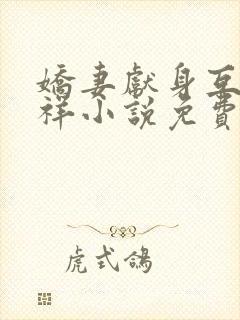 嬌妻獻身互
祥小說免費
虎式鴿